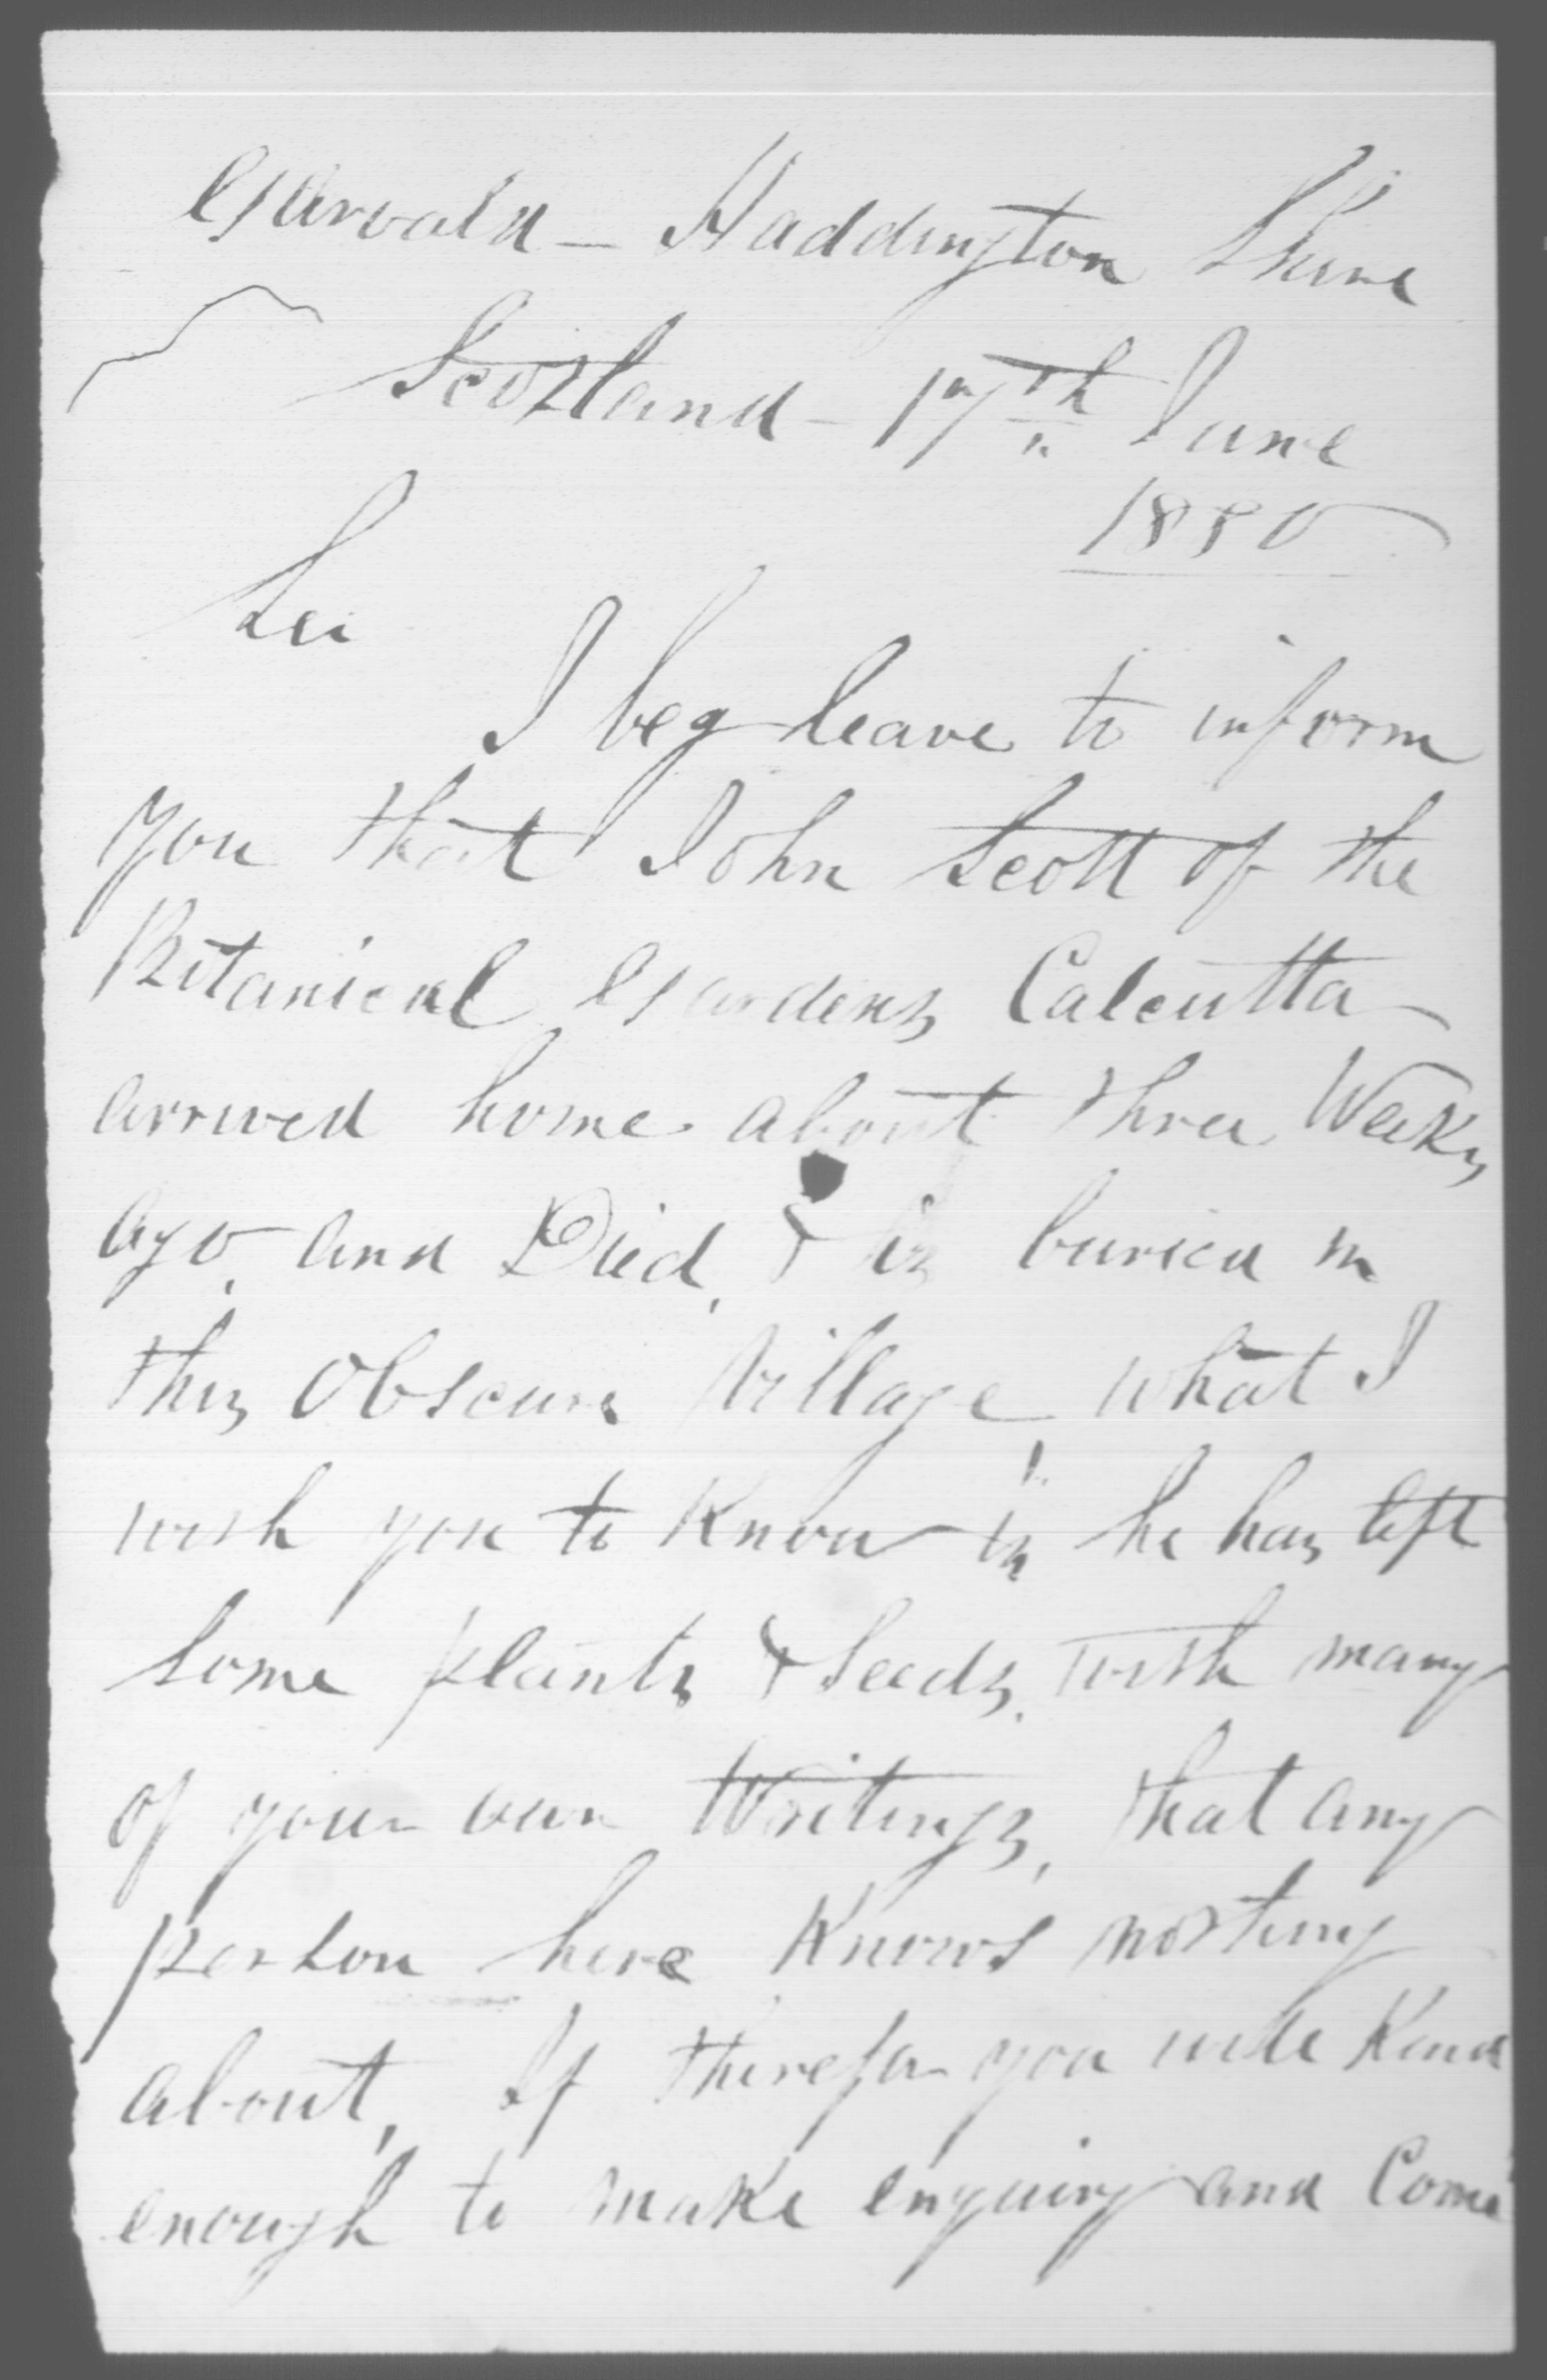 Garvald – Haddington Shire
Scotland – 17th June
1880
Sir
I beg leave to inform
you that John Scott of the
Botanical Gardens Calcutta
arrived home about three Weeks
ago and Died, & is buried in
this Obscure Village what I
wish you to Know is he has left
some plants & Seeds, with many
of your own Writings, that any
person here Knows nothing
about, If therefor you will Kind
enough to make enquiry and Come